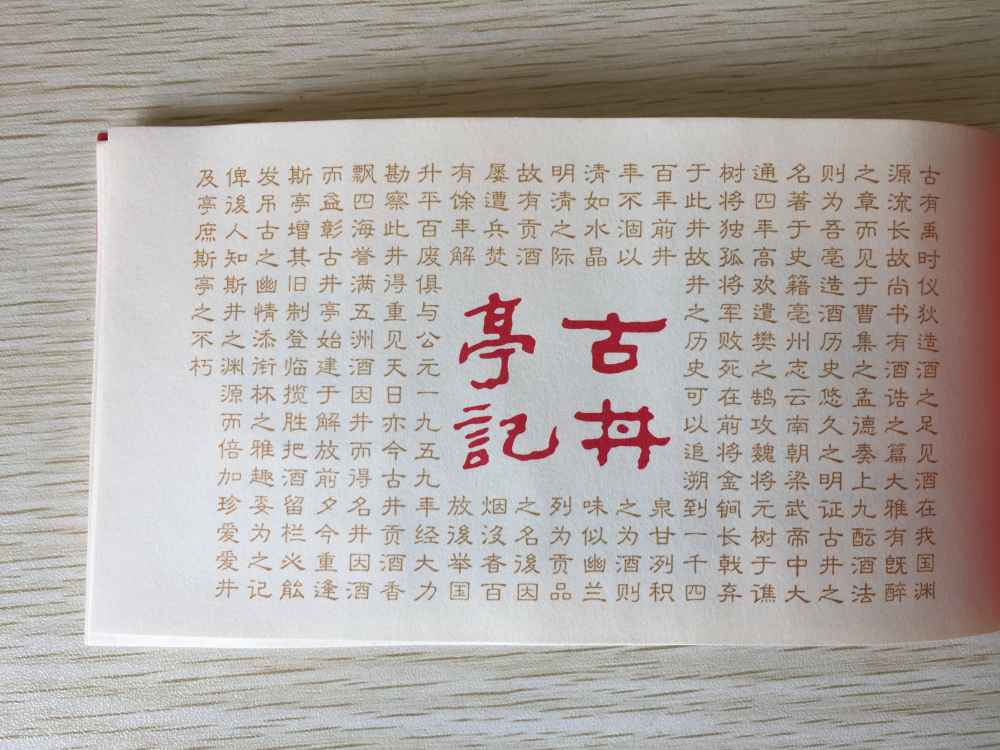 古有禹时仪狄造酒之足见酒在我国渊
源流长故尚书有酒诰之篇大雅有既醉
之章而见于曹集之孟德奏上九酝酒法
则为吾亳造酒历史悠久之明证古井之
名著于史籍亳州志云南朝梁武帝中大
通四年高欢遣樊之鹄攻魏将元树于谯
树将独孤将军败死在前将金锏长戟弃
于此井故井之历史可以追溯到一千四
百年前井泉甘列积
年不涸以之为酒则
清如水晶味似幽兰
明清之际列为贡品
故有贡酒之名後因
屡遭兵焚烟没杳百
有馀年解放後举国
古井
亭記
升平百废俱与公元一九五九年经大力
勘察此井得重见天日亦今古井贡酒香
飘四海誉满五洲酒因井而得名井因酒
而益彰古井亭始建于解放前夕今重逢
斯亭增其旧制登临揽胜把酒留栏必能
发吊古之幽情添衔杯之雅趣爰为之记
俾後人知斯井之渊源而倍加珍爱爱井
及亭庶斯亭之不朽